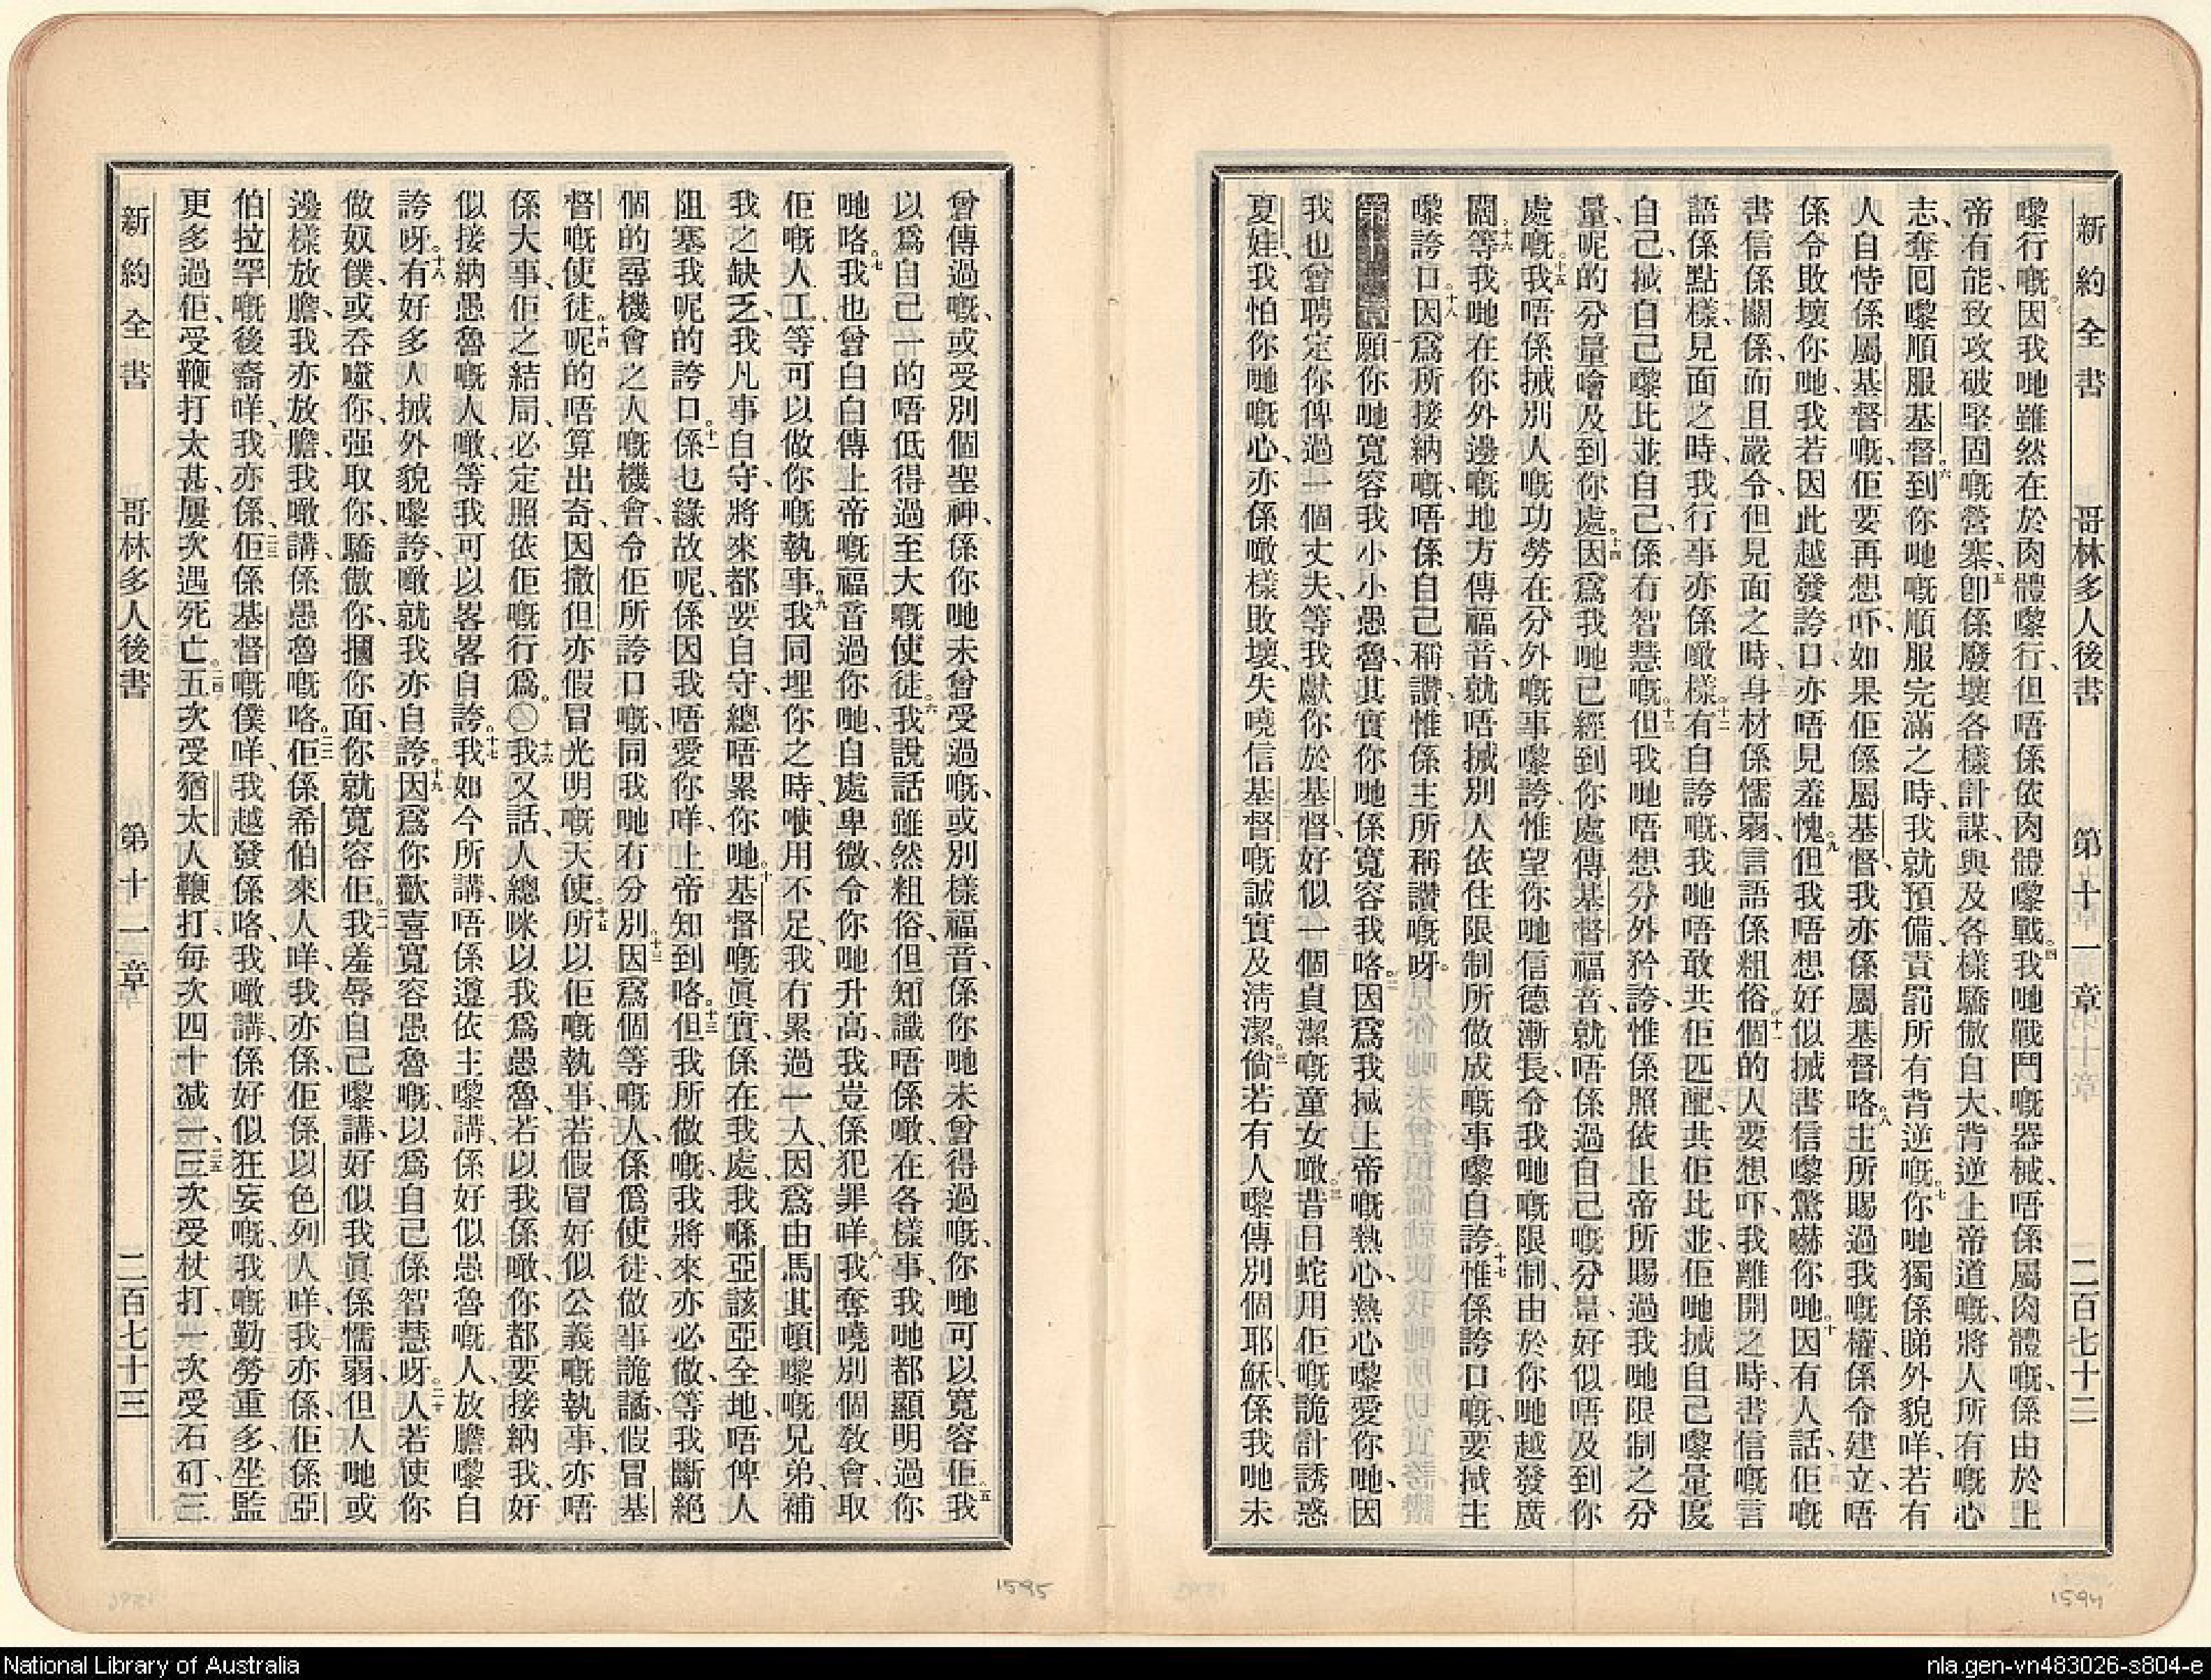 新約全書　哥林多人後書　第十一章　二百七十二
嚟行嘅因我哋雖然在於肉體嚟行、但唔係依肉體嚟戰。四我哋戰鬥嘅器械、唔係屬肉體嘅、係由於上
帝有能、致攻破堅固嘅營寨、五卽係廢壞各樣計謀、與及各樣驕傲自大、背逆上帝道嘅、將人所有嘅心
志、奪囘嚟順服基督。六到你哋嘅順服完滿之時、我就預備、責罰所有背逆嘅。七你哋獨係睇外貌咩、若有
人自恃係屬基督嘅、佢要再想吓、如果佢係屬基督、我亦係屬基督咯。八主所賜過我嘅權、係令建立、唔
係令敗壞你哋、我若因此越發誇口、亦唔見羞愧。九但我唔想好似搣書信嚟驚嚇你哋。十因有人話、佢嘅
書信係關係、而且嚴令、但見面之時、身材係懦弱、言語係粗俗。十一個的人要想吓、我離開之時、書信嘅言
語係點樣、見面之時、我行事亦係噉樣。十二有自誇嘅、我哋唔敢共佢匹配、共佢比並、佢哋搣自己嚟量度
自己、搣自己嚟比並自己、係有智慧嘅。十三但我哋唔想分外矜誇、惟係照依上帝所賜過我哋限制之分
量、呢的分量噲及到你處。十四因爲我哋已經到你處傳基督福音、就唔係過自己嘅分量、好似唔及到你
處嘅。十五我唔係搣別人嘅功勞、在分外嘅事嚟誇、惟望你哋信德漸長、令我哋嘅限制、由於你哋越發廣
闊、十六等我哋在你外邊嘅地方傳福音、就唔搣別人依住限制所做成嘅事嚟自誇。十七惟係誇口嘅、要搣主
嚟誇口。十八因爲所接納嘅、唔係自己稱讚、惟係主所稱讚嘅呀。
第十一章 一願你哋寬容我小小愚魯、其實你哋係寬容我咯。二因爲我搣上帝嘅熱心、熱心嚟愛你哋、因
我也曾聘定你俾過一個丈夫、等我獻你於基督、好似一個貞潔嘅童女噉。三昔日蛇用佢嘅詭計誘惑
夏娃、我怕你哋嘅心、亦係噉樣敗壞、失曉信基督嘅誠實及淸潔。四倘若有人嚟傳別個耶穌、係我哋未
曾傳過嘅、或受別個聖神、係你哋未曾受過嘅、或別樣福音、係你哋未曾得過嘅、你哋可以寬容佢。五我
以爲自己一的唔低得過至大嘅使徒。六我說話雖然粗俗、但知識唔係噉、在各樣事、我哋都顯明過你
哋咯。七我也曾白白傳上帝嘅福音過你哋、自處卑微、令你哋升高、我豈係犯罪咩。八我奪曉別個敎會、取
佢嘅人工、等可以做你嘅執事。九我同埋你之時、嚫用不足、我冇累過一人、因爲由馬其頓嚟嘅兄弟、補
我之缺乏、我凡事自守、將來都要自守、總唔累你哋。十基督嘅眞實、係在我處、我喺亞該亞全地、唔俾人
阻塞我呢的誇口。十一係乜緣故呢、係因我唔愛你咩、上帝知到咯。十二但我所做嘅、我將來亦必做、等我斷絕
個的尋機會之人嘅機會、令佢所誇口嘅、同我哋冇分別。十三因爲個等嘅人、係僞使徒、做事詭譎、假冒基
督嘅使徒。十四呢的唔算出奇、因撒但亦假冒光明嘅天使。十五所以佢嘅執事、若假冒好似公義嘅執事、亦唔
係大事、佢之結局、必定照依佢嘅行爲。○十六我又話、人總咪以我爲愚魯、若以我係噉、你都要接納我、好
似接納愚魯嘅人噉、等我可以畧畧自誇。十七我如今所講、唔係遵依主嚟講、係好似愚魯嘅人、放膽嚟自
誇呀。十八有好多人搣外貌嚟誇、噉就我亦自誇。十九因爲你歡喜寬容愚魯嘅、以爲自己係智慧呀。二十人若使你
做奴僕、或吞噬你、强取你、驕傲你、摑你面、你就寬容佢。二一我羞辱自己嚟講、好似我眞係懦弱、但人哋或
邊樣放膽、我亦放膽、我噉講、係愚魯嘅咯。二二佢係希伯來人咩、我亦係、佢係以色列人咩、我亦係、佢係亞
伯拉罕嘅後裔咩、我亦係、二三佢係基督嘅僕咩、我越發係咯、我噉講、係好似狂妄嘅、我嘅勤勞重多、坐監
更多過佢、受鞭打太甚、屢次遇死亡。二四五次受猶太人鞭打、每次四十减一、二五三次受杖打、一次受石矴、三
新約全書　哥林多人後書　第十一章　二百七十三
1595
1594
National Library of Australia
nla.gen-vn483026-s804-e